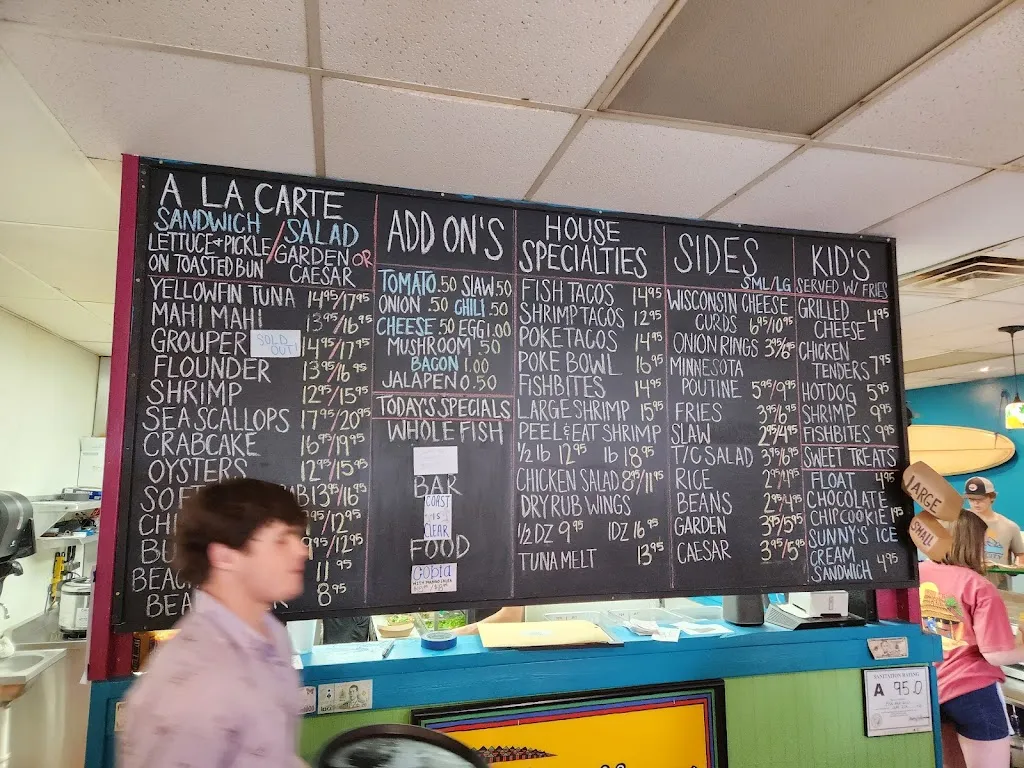 A LA CARTE
SANDWICH / SALAD
LETTUCE + PICKLE GARDEN OR
ON TOASTED BUN CAESAR
YELLOWFIN TUNA 14.95/17.95
MAHI MAHI 13.95/16.95
GROUPER SOLD OUT! 14.95/17.95
FLOUNDER 13.95/16.95
SHRIMP 12.95/15.95
SEA SCALLOPS 17.95/20.95
CRABCAKE 16.95/19.95
OYSTERS 12.95/15.95
SOF B 13.95/16.95
CHI 9.95/12.95
BU 9.95/12.95
BEAC 11.95
BEA 8.95
ADD ON'S
TOMATO .50 SLAW .50
ONION .50 CHILI .50
CHEESE .50 EGG 1.00
MUSHROOM .50
BACON 1.00
JALAPENO .50
TODAY'S SPECIALS
WHOLE FISH
BAR
COAST
IS
CLEAR
FOOD
CObia
HOUSE
SPECIALTIES
FISH TACOS 14.95
SHRIMP TACOS 12.95
POKE TACOS 14.95
POKE BOWL 16.95
FISHBITES 14.95
LARGE SHRIMP 15.95
PEEL & EAT SHRIMP
1/2 lb 12.95 lb 18.95
CHICKEN SALAD 8.95/11.95
DRY RUB WINGS
1/2 DZ 9.95 1DZ 16.95
TUNA MELT 13.95
SIDES
SML/LG
WISCONSIN CHEESE
CURDS 6.95/10.95
ONION RINGS 3.95/6.95
MINNESOTA
POUTINE 5.95/9.95
FRIES 3.95/6.95
SLAW 2.95/4.95
T/C SALAD 3.95/6.95
RICE 2.95/4.95
BEANS 2.95/4.95
GARDEN 3.95/5.95
CAESAR 3.95/5.95
KID'S
SERVED W/ FRIES
GRILLED
CHEESE 4.95
CHICKEN
TENDERS 7.95
HOTDOG 5.95
SHRIMP 9.95
FISHBITES 9.95
SWEET TREATS
FLOAT 4.95
CHOCOLATE
CHIP COOKIE 1.95
SUNNY'S ICE
CREAM
SANDWICH 4.95
LARGE
SMALL
SANITATION RATING
A 95.0